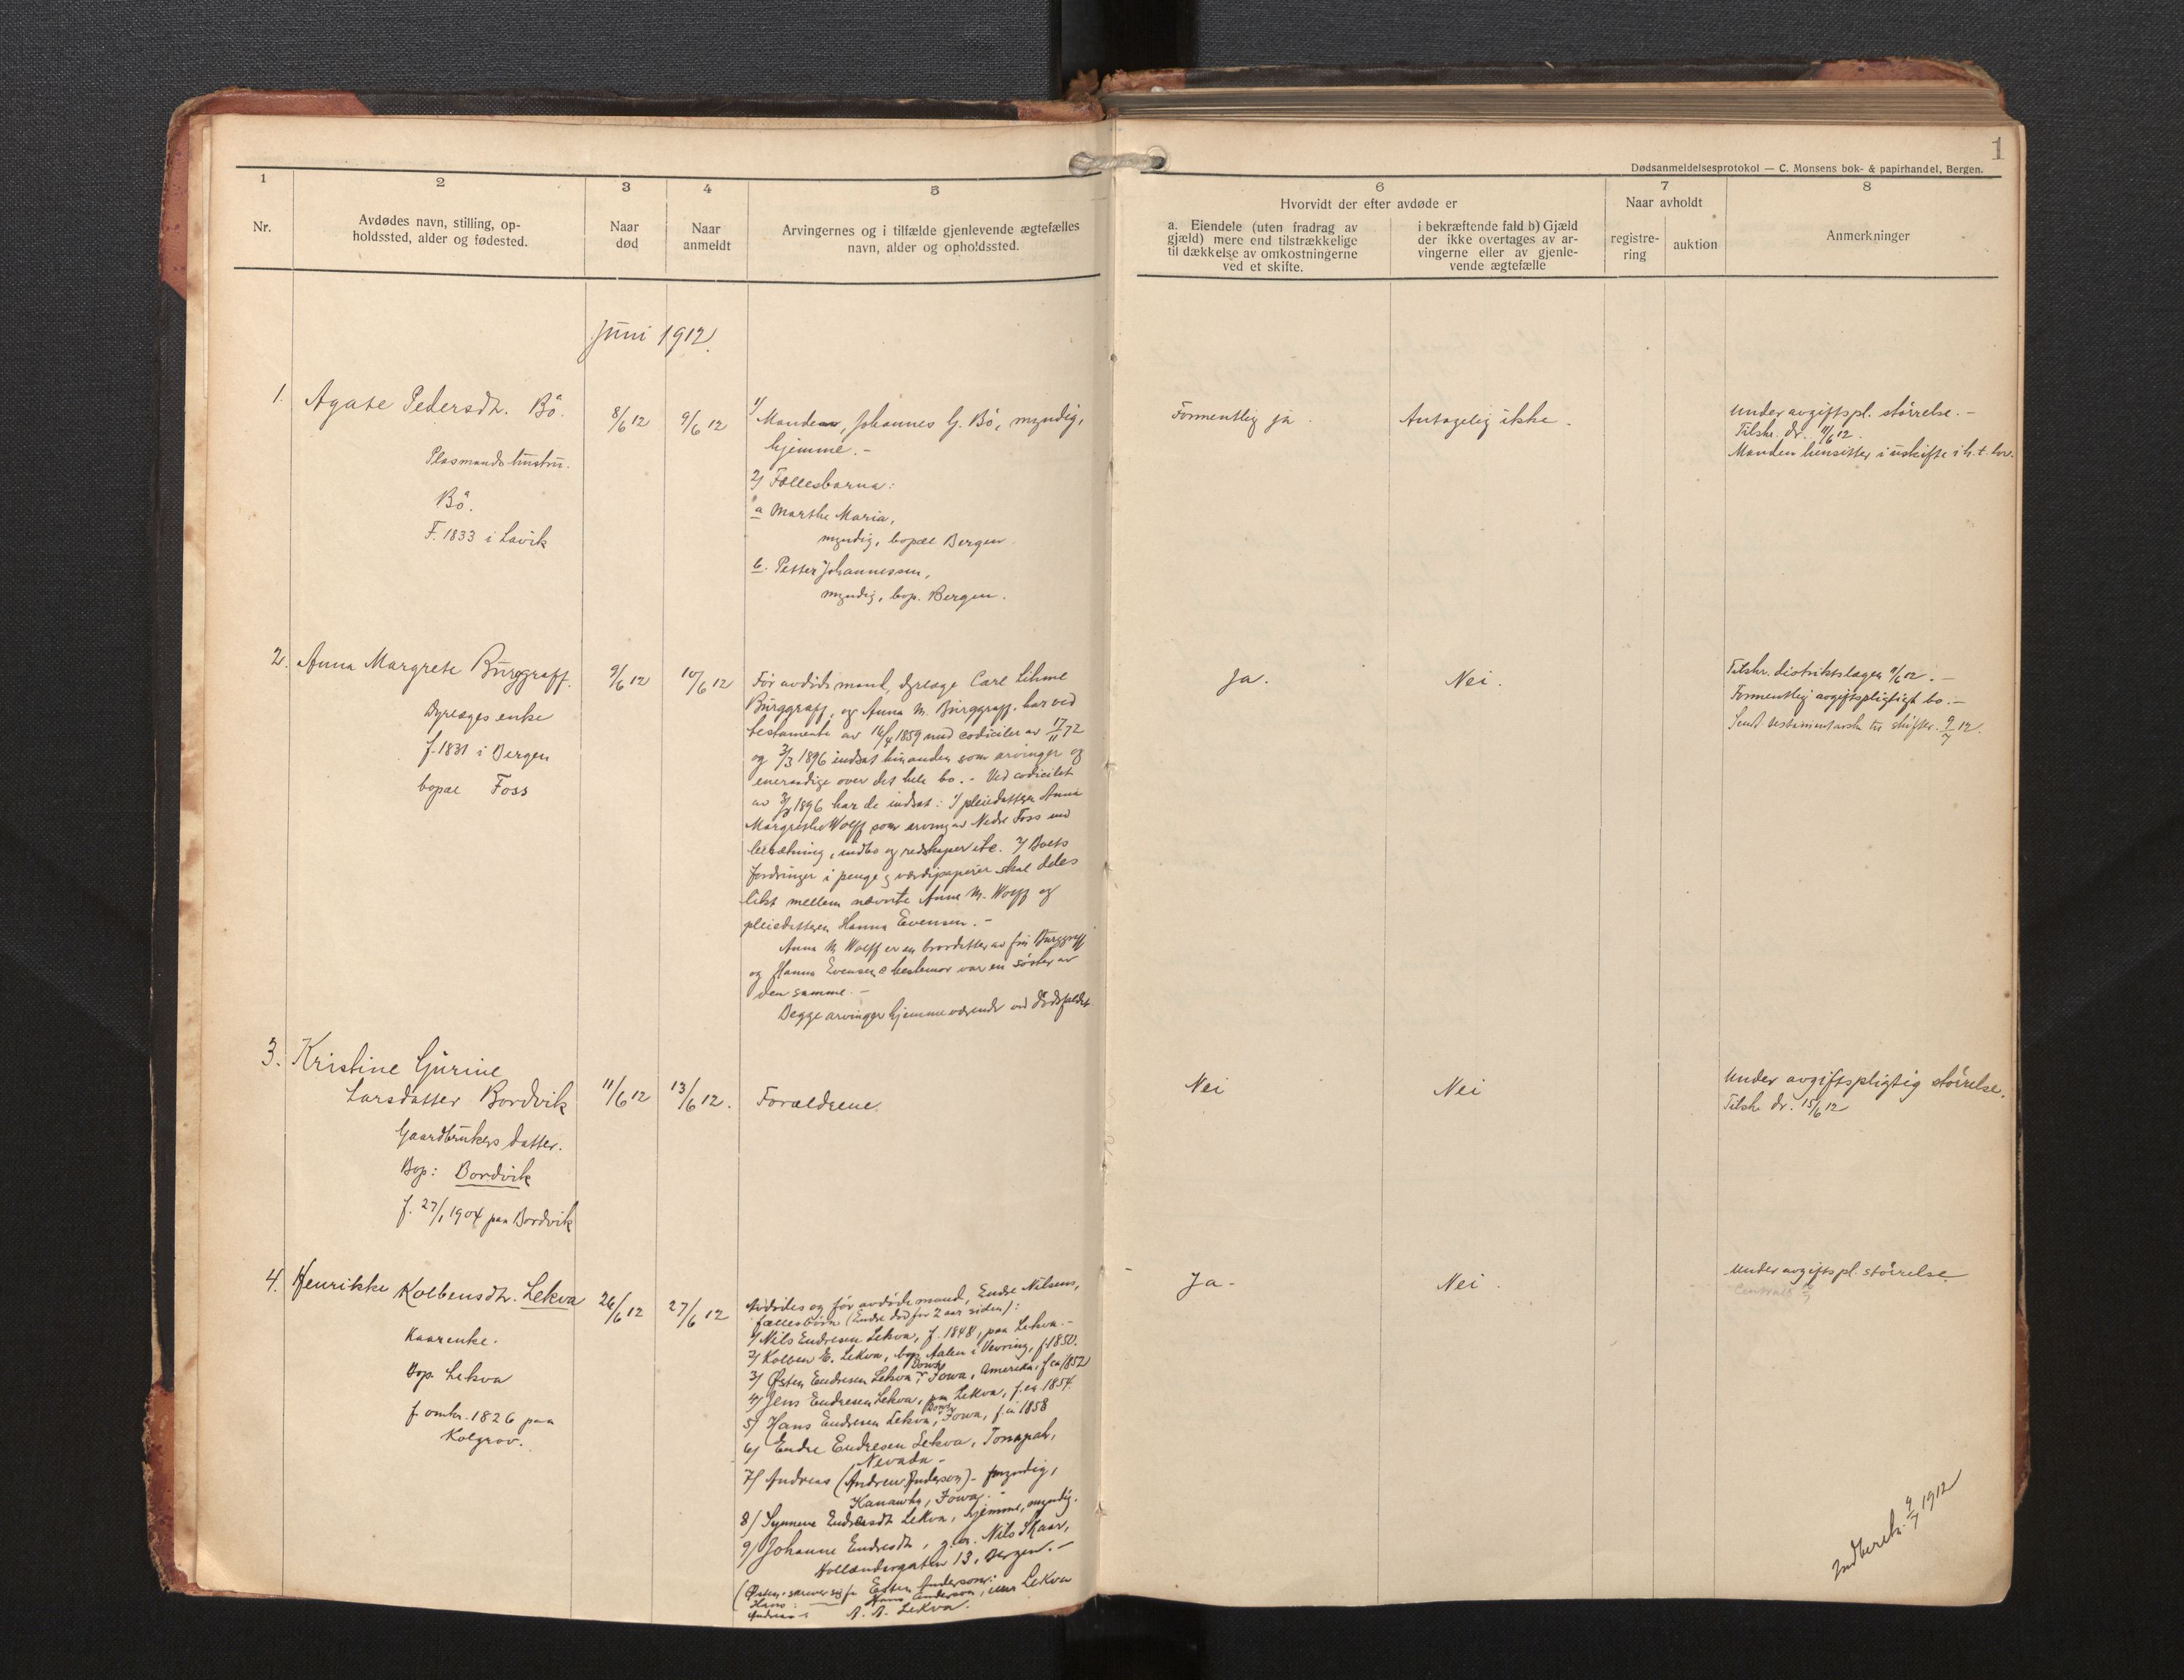 1
Dødsanmeldelsesprotokol — C. Monsens bok- & papirhandel, Bergen.
1
Nr.
2
Avdødes navn, stilling, op-
holdssted, alder og fødested.
3
Naar
død
4
Naar
anmeldt
5
Arvingernes og i tilfælde gjenlevende ægtefælles
navn, alder og opholdssted.
6
Hvorvidt der efter avdøde er
a. Eiendele (uten fradrag av
gjæld) mere end tilstrækkelige
til dækkelse av omkostningerne
ved et skifte.
i bekræftende fald b) Gjæld
der ikke overtages av ar-
vingerne eller av gjenle-
vende ægtefælle
7
Naar avholdt
registre-
ring
auktion
8
Anmerkninger
Juni 1912.
1. Agate Pedersdtr. Bö.
Plasmands hustru.
Bö.
F. 1833 i Lavik
8/6 12
9/6 12
1/
Manden, Johannes G. Bö, myndig,
hjemme. -
2/ Fællesbarna:
a Marthe Maria,
myndig, bopæl Bergen
b. Petter Johannessen,
myndig, bop. Bergen.
Formentlig ja.
Antagelig ikke.
Under avgiftspl. störrelse. -
Tilskr. dr. 11/6 12.
Manden hensitter i uskifte i h. t. lov.
2. Anna Margrete Burggraff.
Dyrlæges enke
f. 1831 i Bergen
bopæl Foss
9/6 12
10/6 12
Før avdøde mand, dyrlæge Carl Lihme
Burggraff, og Anna M. Burggraff har ved
testamente av 16/4 1859 med codiciler av 17/11 72
og 3/3 1896 indsat hinanden som arvinger og
eneraadige over det hele bo. - Ved codicilet
av 3/3 1896 har de indsat: 1/ pleiedatteren Anna
Margrethe Wolff som arving av Nedre Foss med
besætning, indbo og redskaper etc. 2/ Boets
fordringer i penge og værdipapirer skal deles
likt mellem nævnte Anna M. Wolff og
pleiedatteren Hanna Evensen. -
Anna M. Wolff er en brordatter av fru Burggraff
og Hanna Evensens bestemor var en söster av
den samme. -
Begge arvinger hjemmeværende ved dödsfaldet
Ja.
Nei.
Tilskr. distriktslægen 11/6 12. -
Formentlig avgiftspligtigt bo. -
Sendt testamentarisk til skifter. 9/7 12.
3. Kristine Gurine
Larsdatter Bordvik
Gaardbrukers datter.
Bop: Bordvik
f. 27/1 1904 paa Bordvik
11/6 12
13/6 12.
Forældrene.
Nei
Nei
Under avgiftspligtig störrelse.
Tilskr dr. 15/6 12
4. Henrikke Kolbensdtr. Lekva
Kaarenke.
Bop. Lekva
f. omkr. 1826 paa
Kolgrov.
26/6 12
27/6 12
Avdødes og før avdøde mand, Endre Nilsens,
fællesbörn (Endre död for 2 aar siden):
1/ Nils Endresen Lekva, f. 1848, paa Lekva. -
2/ Kolben E. Lekva, bop. Aalen i Vevring, f. 1850.
3/ Østen Endresen Lekva, Iowa, Amerika, f. ca 1852
4/ Jens Endresen Lekva, paa Lekva, f. ca. 1854.
5/ Hans Endresen Lekva, Iowa, f. ca 1858
6/ Endre Endresen Lekva, Tonapah,
Nevada -
7/ Andreas (Andrew Anderson) - myndig,
Kanawha, Iowa. -
8/ Synneve Endresdtr Lekva, hjemme, myndig.
9/ Johanne Endresdtr, g. m. Nils Skaar,
Hollændergaten 13, Bergen. -
(Østen skriver sig for Esten Anderson:
Hans: Hans Anderson, Lekva
Andreas: A. A. Lekva.
Ja -
Nei.
Under avgiftspl. störrelse
Indberetn. 9/7 1912